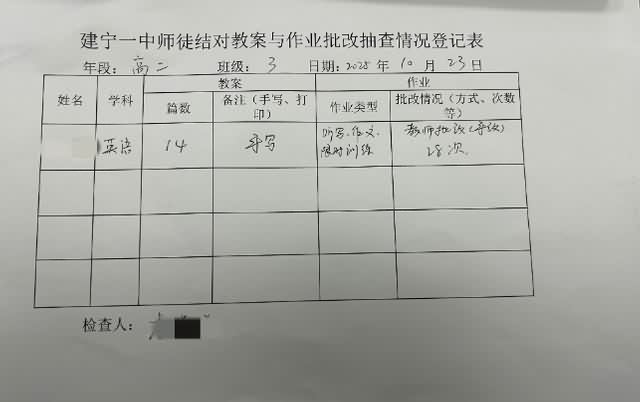 建宁一中师徒结对教案与作业批改抽查情况登记表
年段：高二 班级：3 日期：2025年10月23日
教案 作业
姓名 学科 篇数 备注（手写、打印） 作业类型 批改情况（方式、次数等）
英语 14 手写 听写、作文、限时训练 教师批改（等级）28次
检查人：